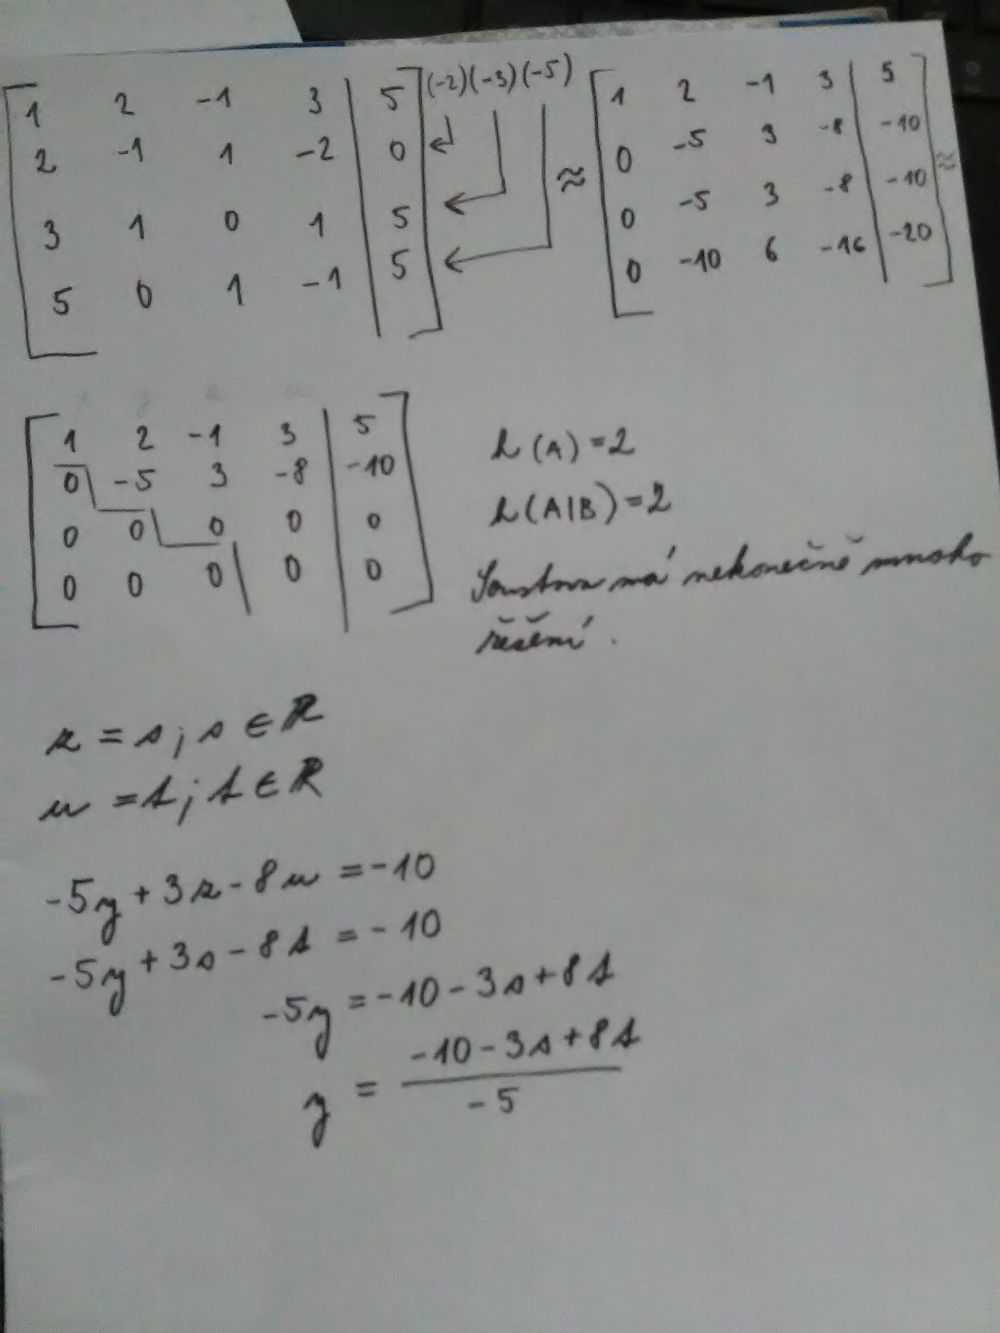 1 2 -1 3 | 5 (-2)(-3)(-5)
2 -1 1 -2 | 0
3 1 0 1 | 5
5 0 1 -1 | 5
≈
1 2 -1 3 | 5
0 -5 3 -8 | -10
0 -5 3 -8 | -10
0 -10 6 -16 | -20
≈
1 2 -1 3 | 5
0 -5 3 -8 | -10
0 0 0 0 | 0
0 0 0 0 | 0
h(A)=2
h(A|B)=2
Soustava má nekonečně mnoho
řešení.
z = s; s ∈ R
u = t; t ∈ R
-5y + 3z - 8u = -10
-5y + 3s - 8t = -10
-5y = -10 - 3s + 8t
y = (-10 - 3s + 8t) / -5